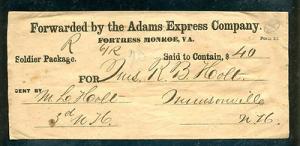 Forwarded by the Adams Express Company.
FORTRESS MONROE, VA.
R
Soldier Package. Said to Contain, $ 40
FOR Mrs. R B Holt
SENT BY M L Holt
3d N.H. N H